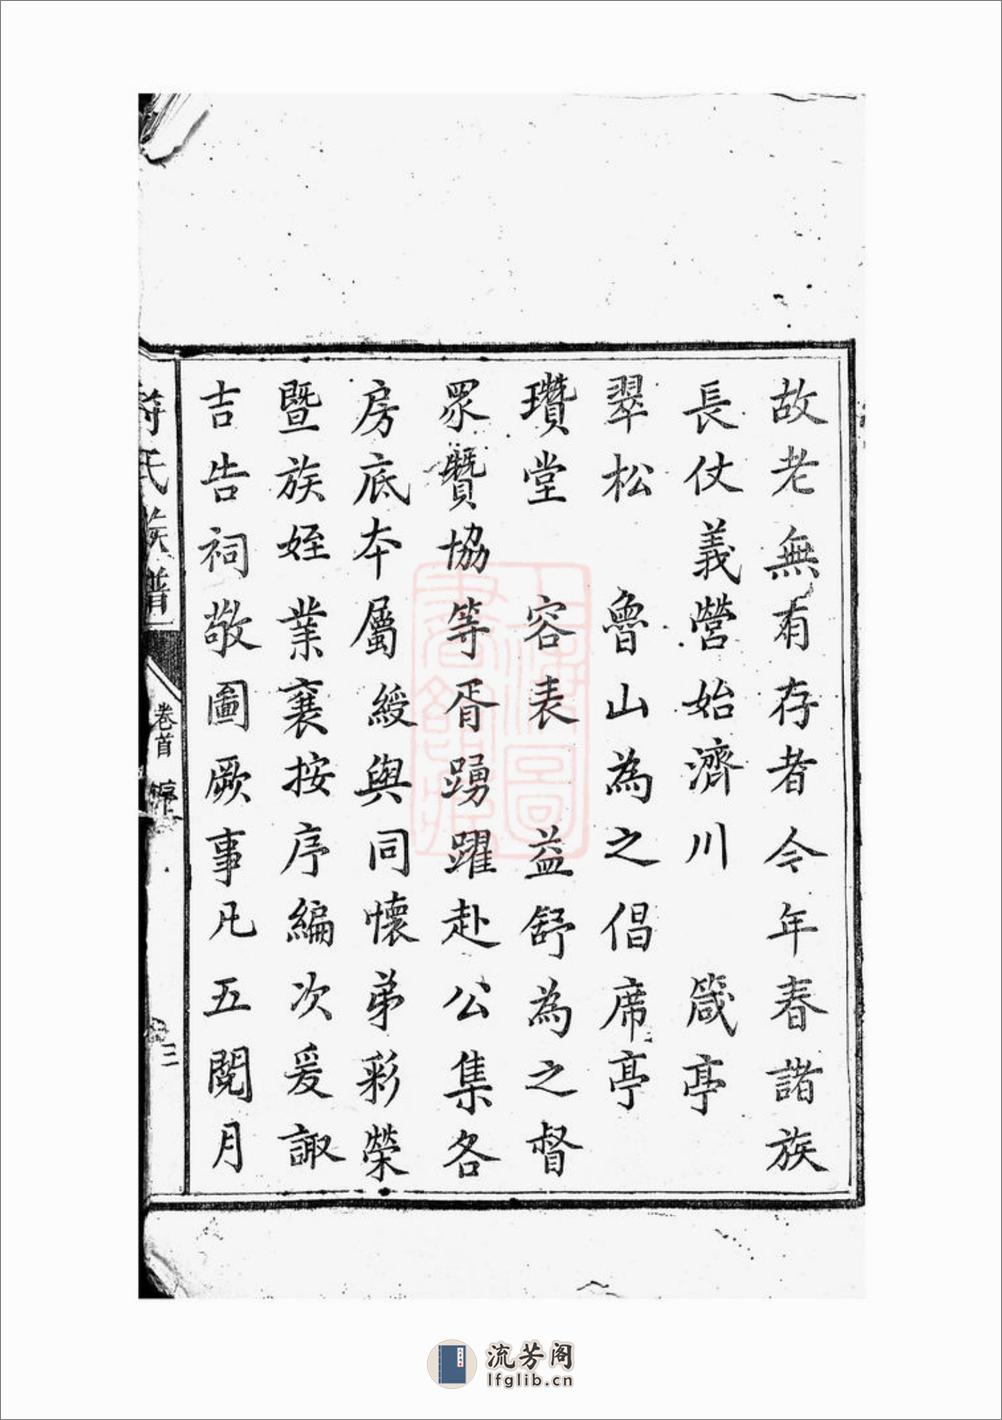 故老無有存者今年春諸族
長仗義營始濟川 箴亭
翠松 魯山為之倡席亭
瓚堂 容表 益舒為之督
眾贊協等胥踴躍赴公集各
房底本屬綬與同懷弟彩榮
暨族姪業襄按序編次爰諏
吉告祠敬圖厥事凡五閱月
氏族譜
卷首 序
三
上海圖書館藏
流芳阁
lfglib.cn